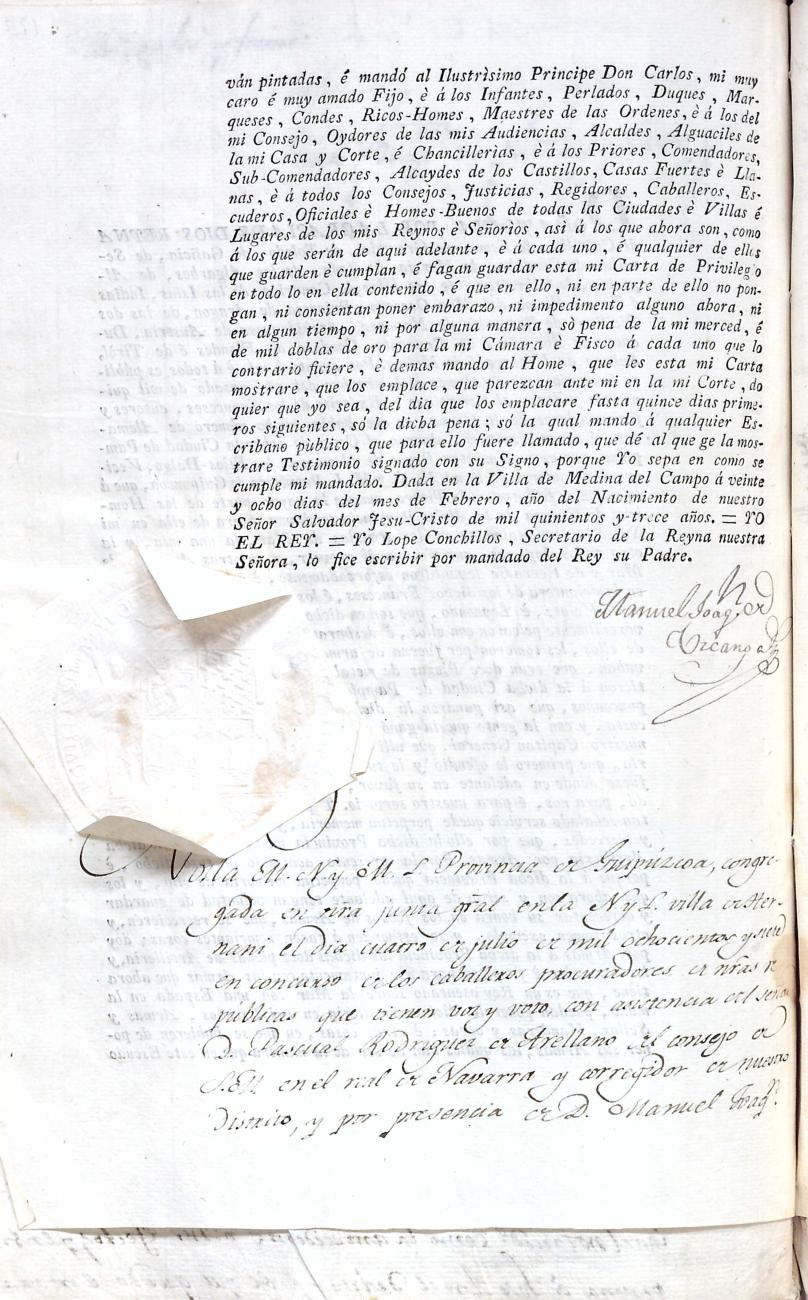 ván pintadas, é mandó al Ilustrìsimo Principe Don Carlos, mi muy
caro é muy amado Fijo, è á los Infantes, Perlados, Duques, Mar-
queses, Condes, Ricos-Homes, Maestres de las Ordenes, è á los del
mi Consejo, Oydores de las mis Audiencias, Alcaldes, Alguaciles de
la mi Casa y Corte, é Chancillerìas, è á los Priores, Comendadores,
Sub-Comendadores, Alcaydes de los Castillos, Casas Fuertes è Lla-
nas, è á todos los Consejos, Justicias, Regidores, Caballeros, Es-
cuderos, Oficiales è Homes-Buenos de todas las Ciudades è Villas é
Lugares de los mis Reynos è Señorìos, asì á los que ahora son, como
á los que serán de aqui adelante, è á cada uno, é qualquier de ellos
que guarden è cumplan, é fagan guardar esta mi Carta de Privilegio
en todo lo en ella contenido, é que en ello, ni en parte de ello no pon-
gan, ni consientan poner embarazo, ni impedimento alguno ahora, ni
en algun tiempo, ni por alguna manera, sò pena de la mi merced, é
de mil doblas de oro para la mi Cámara è Fisco á cada uno que lo
contrario ficiere, è demas mando al Home, que les esta mi Carta
mostrare, que los emplace, que parezcan ante mi en la mi Corte, do
quier que yo sea, del dia que los emplacare fasta quince dias prime-
ros siguientes, só la dicha pena; só la qual mando á qualquier Es-
cribano pùblico, que para ello fuere llamado, que dé al que ge la mos-
trare Testimonio signado con su Signo, porque Yo sepa en como se
cumple mi mandado. Dada en la Villa de Medina del Campo á veinte
y ocho dias del mes de Febrero, año del Nacimiento de nuestro
Señor Salvador Jesu-Cristo de mil quinientos y trece años. = YO
EL REY. = Yo Lope Conchillos, Secretario de la Reyna nuestra
Señora, lo fice escribir por mandado del Rey su Padre.
Manuel Joaq.n de
Uzcanga
Nos la M. N. y M. L. Provincia de Guipúzcoa, congre-
gada en nra junta gral en la N. y L. villa de Her-
nani el dia cuatro de julio de mil ochocientos y siete
en concurso de los caballeros procuradores de nras re
publicas que tienen voz y voto, con asistencia del señor
D. Pascual Rodriguez de Arellano del consejo de
S.M. en el real de Navarra y corregidor de nuestro
distrito, y por presencia de D. Manuel Joaq.n